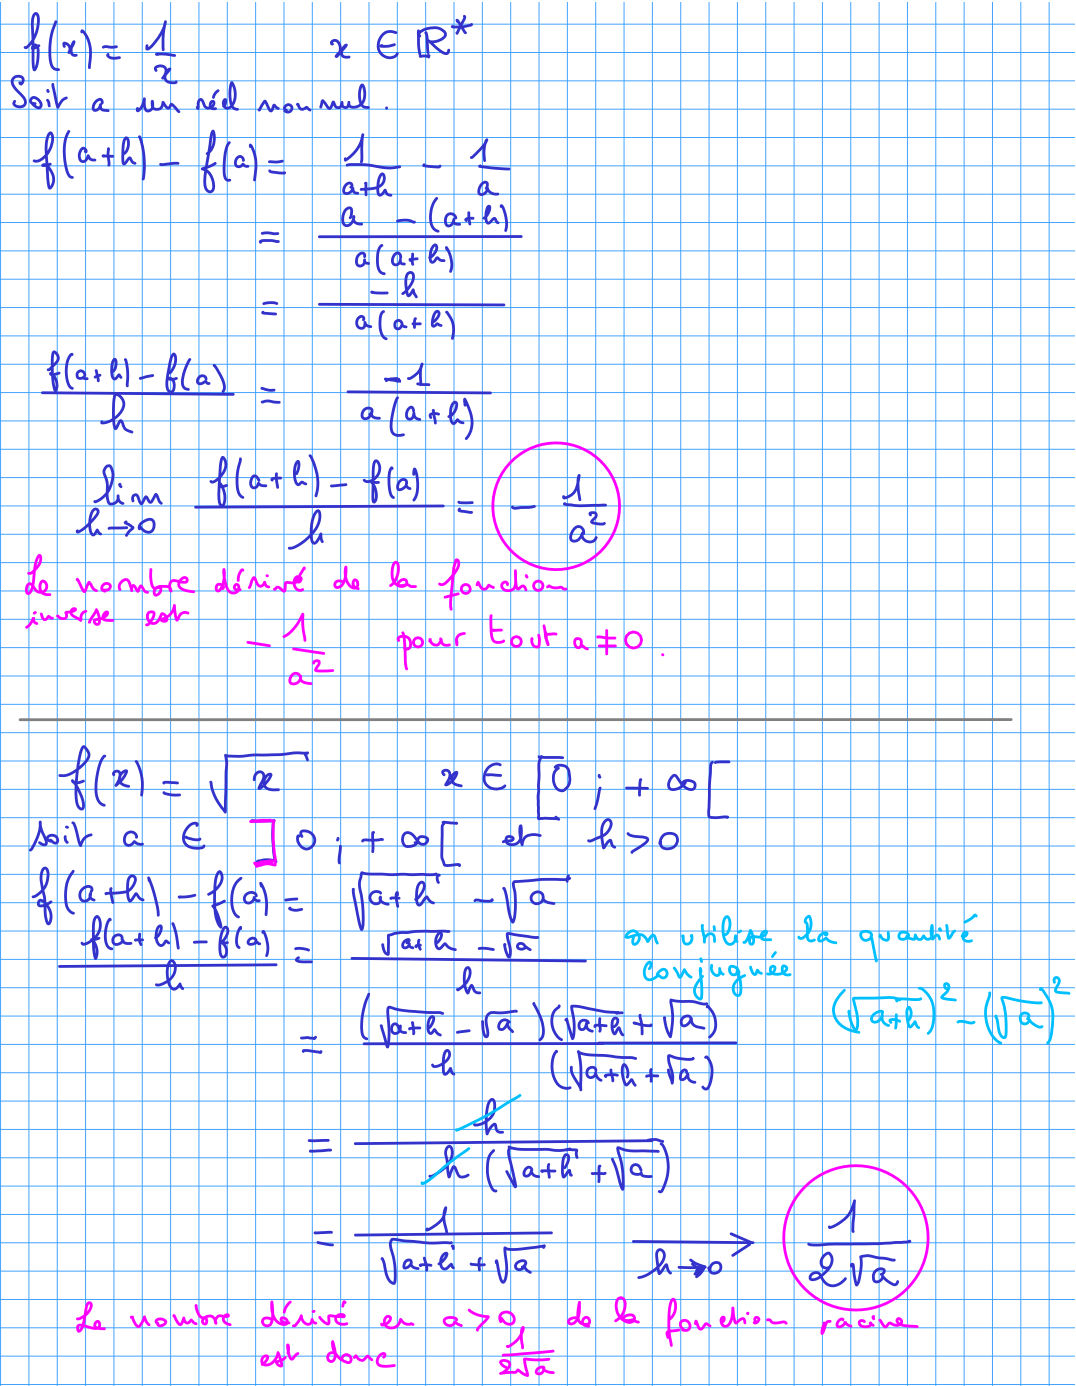 f(x) = 1/x x ∈ ℝ*
Soit a un réel non nul.
f(a+h) - f(a) = 1/(a+h) - 1/a
= (a - (a+h))/(a(a+h))
= -h/(a(a+h))
(f(a+h) - f(a))/h = -1/(a(a+h))
lim h→0 (f(a+h) - f(a))/h = - 1/a²
Le nombre dérivé de la fonction
inverse est
- 1/a² pour tout a ≠ 0.
f(x) = √x x ∈ [0 ; +∞[
soit a ∈ ]0 ; +∞[ et h > 0
f(a+h) - f(a) = √(a+h) - √a
(f(a+h) - f(a))/h = (√(a+h) - √a)/h on utilise la quantité
conjuguée
= ((√(a+h) - √a)(√(a+h) + √a))/(h (√(a+h) + √a)) (√(a+h))² - (√a)²
= h/(h (√(a+h) + √a))
= 1/(√(a+h) + √a) → h→0 1/(2√a)
Le nombre dérivé en a>0 de la fonction racine
est donc 1/(2√a)